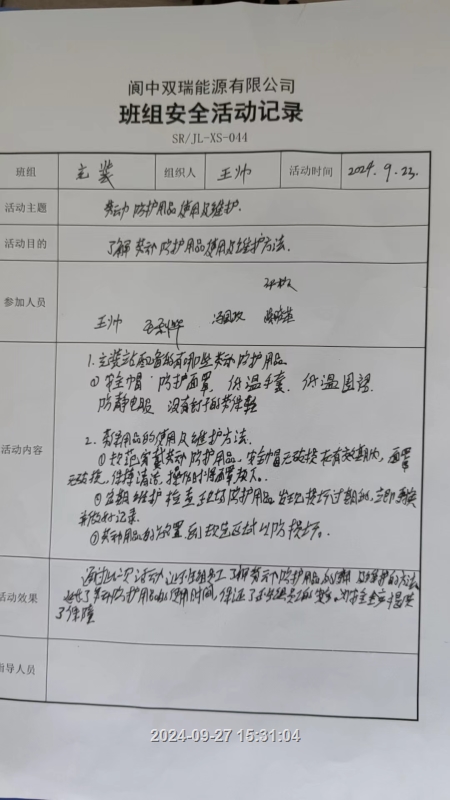 阆中双瑞能源有限公司
班组安全活动记录
SR/JL-XS-044
班组 主装 组织人 王帅 活动时间 2024.9.23.
活动主题 劳动防护用品使用及维护.
活动目的 了解劳动防护用品使用及维护方法.
参加人员
王帅
活动内容
1.主装站配备的有哪些劳动防护用品
①安全帽 防护面罩, 低温手套, 低温围裙
防静电服 没有钉子的劳保鞋
2.劳保用品的使用及维护方法.
①规范穿戴劳动防护用品.安全帽无破损在有效期内,面罩
无破损,保持清洁,操作时将面罩放下.
②定期维护检查
防护用品发现损坏过期的,立即更换
并做好记录.
③劳动用品的放置到规定区域以防损坏.
活动效果
通过此次活动让本班组员工了解劳动防护用品的使用及维护的方法
劳动防护用品的使用时间,保证了本班组员工的安全,对安全生产提供
了保障
指导人员
2024-09-27 15:31:04